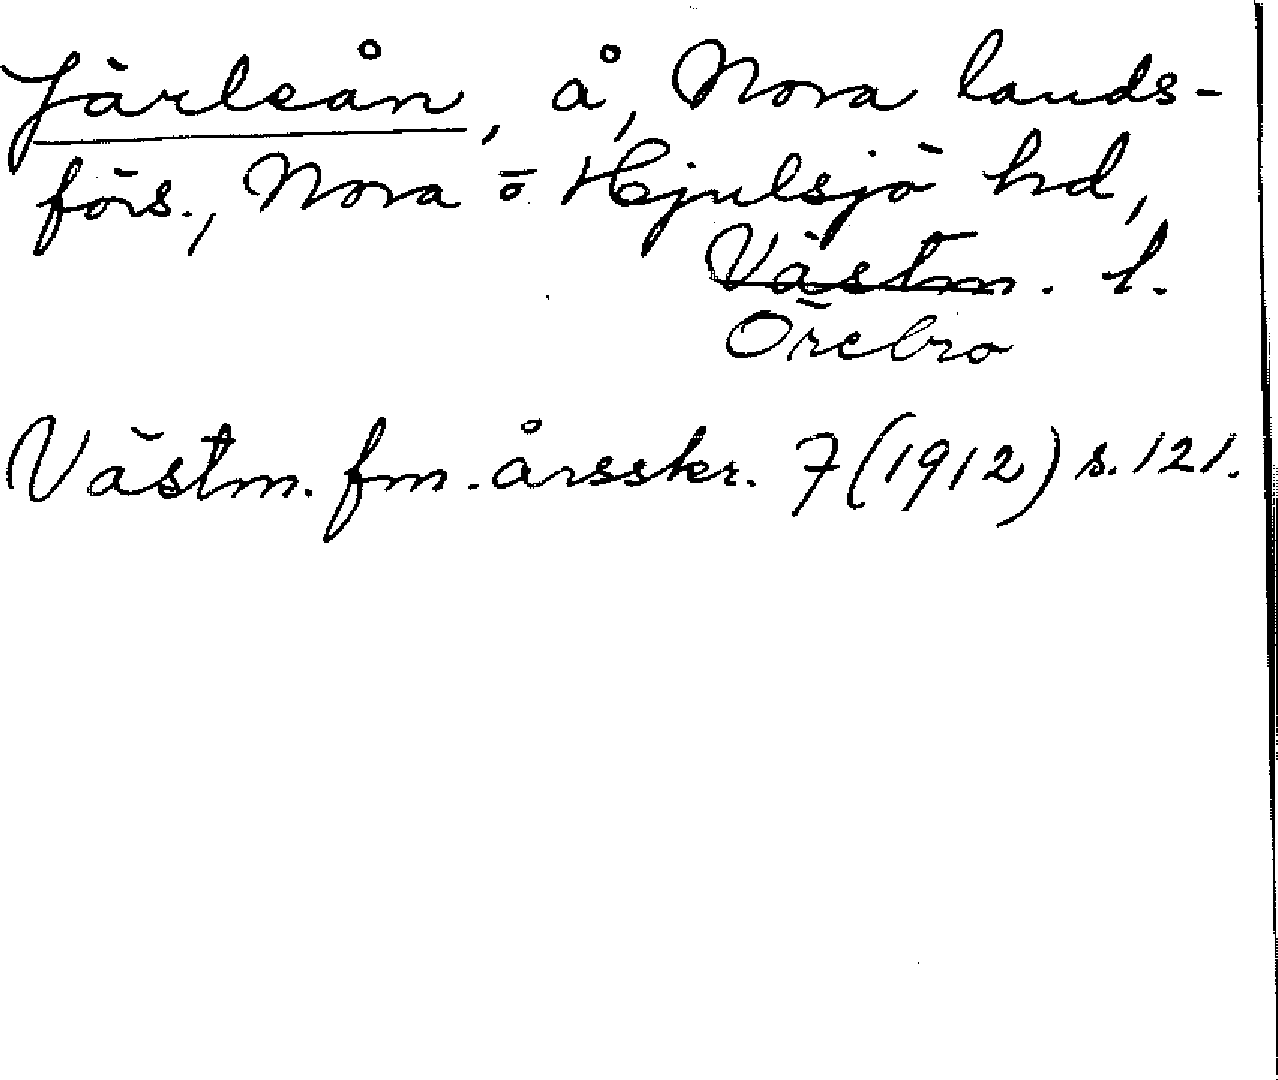 Järleån, å, Nora lands-
förs., Nora o Hjulsjö hd,
Västm. l.
Örebro
Västm. fm. årsskr. 7 (1912) s. 121.